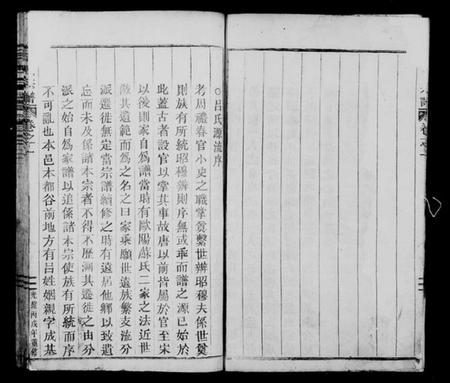 ○呂氏源流序
考周禮春官小史之職掌奠繫世辨昭穆夫係世奠
則族有所統昭穆辨則序無或乖而譜之源已始於
此蓋古者設官以掌其事故唐以前皆屬於官至宋
以後則家自為譜當時有歐陽蘇氏二家之法近世
倣其遺範而為之名之曰家乘願世遠族繁支流分
派遷徙無定當宗譜續修之時有遠居他鄉以致遺
忘而未及係諸本宗者不得不歷溯其遷徙之由分
派之始自為家譜以追係諸本宗使族有所統而序
不可亂也本邑本都谷前地方有呂姓姻親字成基
光緒丙戌年重修